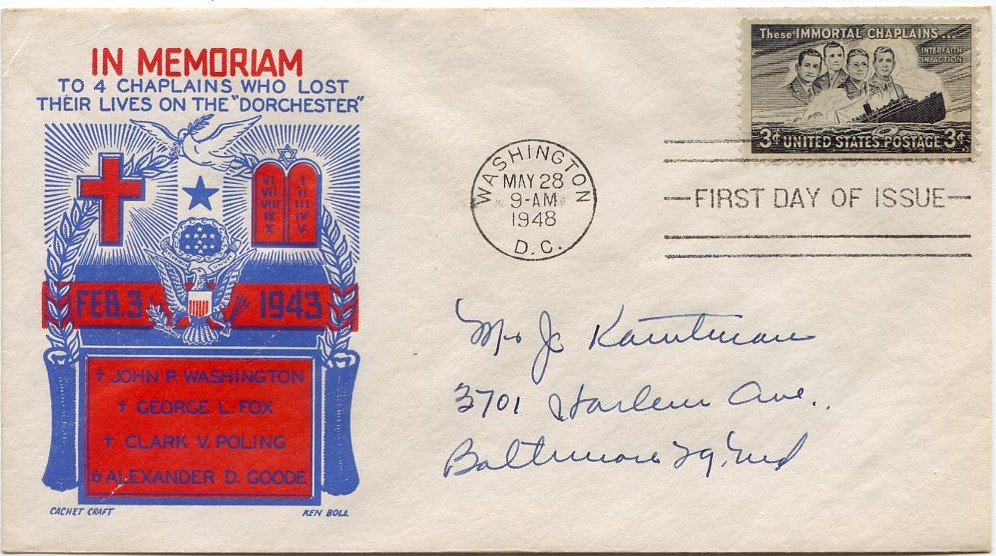 IN MEMORIAM
TO 4 CHAPLAINS WHO LOST
THEIR LIVES ON THE "DORCHESTER"
VI I
VII II
VIII III
IX IV
X V
FEB. 3 1943
† JOHN P. WASHINGTON
† GEORGE L. FOX
† CLARK V. POLING
✡ ALEXANDER D. GOODE
CACHET CRAFT KEN BOLL
WASHINGTON
MAY 28
9-AM
1948
D.C.
These IMMORTAL CHAPLAINS...
INTERFAITH
IN ACTION
3¢ UNITED STATES POSTAGE 3¢
FIRST DAY OF ISSUE
3701 Harlem Ave.,
Baltimore 29, Md